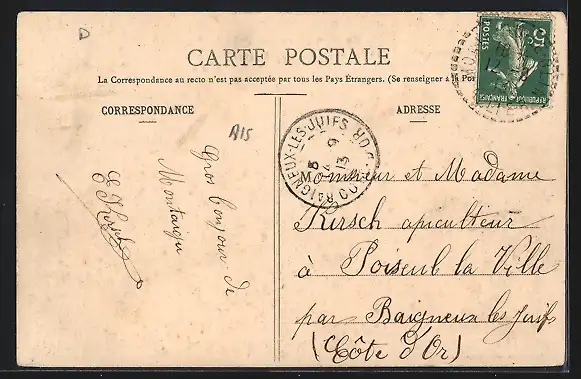 D
CARTE POSTALE
La Correspondance au recto n'est pas acceptée par tous les Pays Étrangers. (Se renseigner à la Pos
CORRESPONDANCE
ADRESSE
A15
Gros bonjour de
Montaigu
5c
POSTES
REPUBLIQUE FRANÇAISE
BAIGNEUX-LES-JUIFS
CÔTE D'OR
9
13
Monsieur et Madame
Kirsch apiculteur
à Poiseul la Ville
par Baigneux les Juifs
(Côte d'Or)